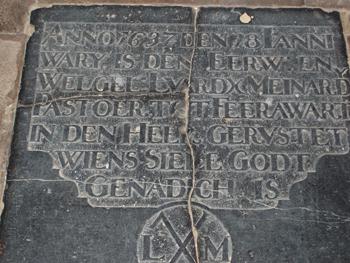 ANNO 1637 DEN 18 IANNI
WARY IS DEN EERW EN
WELGEL LVARDX MEINARD
PASTOER TOT FEERAWART
IN DEN HEERE GERVSTET
WIENS SIELE GODT
GENADICH IS
L M